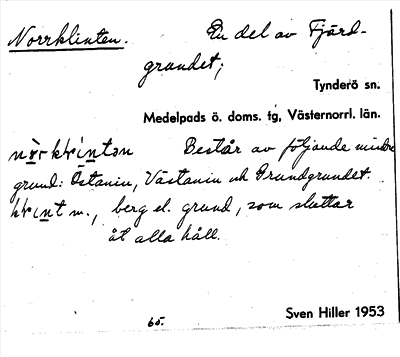 Norrklinten. En del av Fjärd-
grundet;
Tynderö sn.
Medelpads ö. doms. tg, Västernorrl. län.
Består av följande mindre
grund: Östanin, Västanin och Grundgrundet.
m., berg el. grund, som sluttar
åt alla håll.
65. Sven Hiller 1953